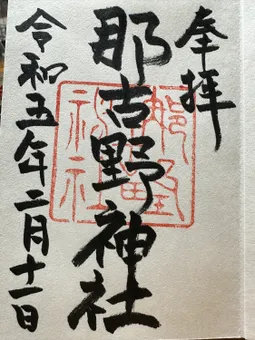 奉拝
那古野神社
令和五年二月十一日